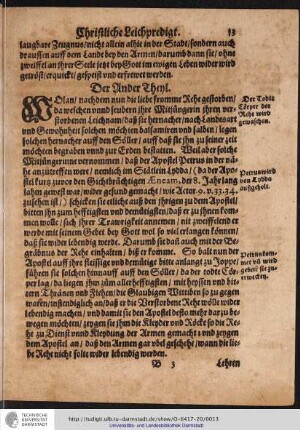 Christliche Leichpredigt.
13
laugbare Zeugnus/nicht allein alhie in der Stadt/sondern auch
draussen auff dem Lande bey den Armen/darumb dann sie/ohne
zweiffel an ihrer Seele jetzt bey Gott im ewigen Leben wider wird
getröst/erquickt/gespeist und erfrewet werden.
Der Ander Theyl.
WOlan/nachdem nun die liebe fromme Rehe gestorben/
da weschen und seubern ihre Mitjüngern ihren ver-
storbenen Leichnam/daß sie hernacher/nach Landsart
und Gewohnheit solchen möchten balsamiren und salben/legen
solchen hernacher auff den Söller/auff daß sie ihn zu seiner zeit
möchten begraben und zur Erden bestatten. Weil aber solche
Mitjüngere vernommen/daß der Apostel Petrus in der nähe
anzutreffen wer/nemlich im Stätlein Lydda/(da der Apo-
stel kurz zuvor den Gichtbrüchigen Aeneam, der 8. Jahr lang
lahm gewest war/wider gesund gemacht/wie Actor. 9. v. 33. 34.
zusehen ist/) schicken sie etliche auß den ihrigen zu dem Apostel/
bitten ihn zum hefftigsten und demütigsten/daß er zu ihnen kom-
men wolle/sich ihrer Trawrigkeit annemen/mit zweiffelend er
werde mit seinem Gebet bey Gott wol so viel erlangen können/
daß sie wider lebendig werde. Darumb sie daß auch mit der Be-
gräbnus der Rehe einhalten/biß er komme. So balt nun der
Apostel auff ihre fleissige und demütige bitte anlangt zu Joppe/
führen sie solchen hinnauff auff den Söller/da der todte Cör-
per lag/da liegen ihn zum aller hefftigsten/mit heyssen und bit-
tern Thränen und Flehen/die Glaubigen Wittiben so zu gegen
waren/instendiglich an/daß er die Verstorbene Rehe wölle wider
lebendig machen/und damit sie den Apostel desto mehr darzu be-
wegen möchten/zeygen sie ihm die Kleyder und Röcke so die Re-
he zu Dienst und Kleydung der Armen gemacht und zeygen
dem Apostel an/daß den Armen gar übel geschehe/wann die lie-
be Rehe nicht solte wider lebendig werden.
B 3
Lehren
Der Todte
Cörper der
Rehe wird
gewaschen.
Petrus wird
von Lydda
außgeholt.
Petrus kom-
met und wird
gebeten sie zu
erwecken.
TECHNISCHE
UNIVERSITÄT
DARMSTADT
http://tudigit.ulb.tu-darmstadt.de/show/O-8417-20/0013
Universitäts- und Landesbibliothek Darmstadt